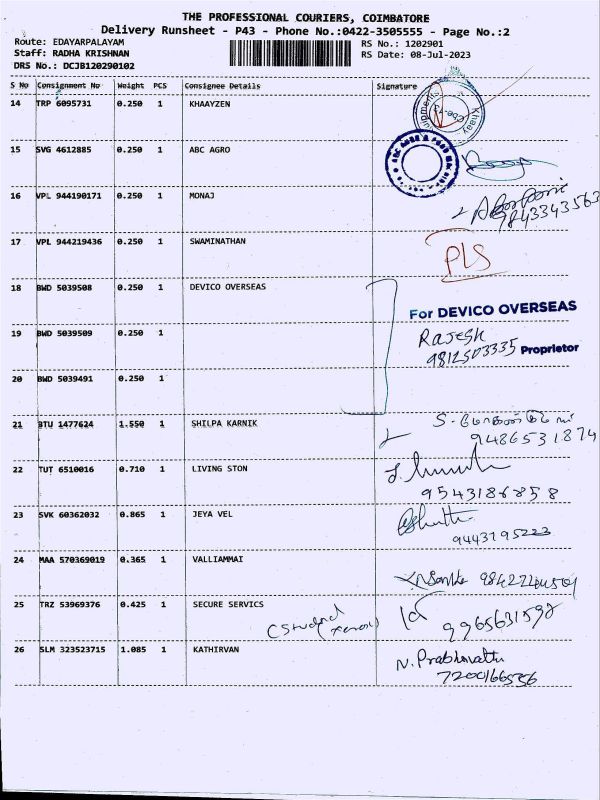 THE PROFESSIONAL COURIERS, COIMBATORE
Delivery Runsheet - P43 - Phone No.:0422-3505555 - Page No.:2
Route: EDAYARPALAYAM RS No.: 1202901
Staff: RADHA KRISHNAN RS Date: 08-Jul-2023
DRS No.: DCJB120290102
S No Consignment No Weight PCS Consignee Details Signature
14 TRP 6095731 0.250 1 KHAAYZEN
15 SVG 4612885 0.250 1 ABC AGRO
16 VPL 944190171 0.250 1 MONAJ
9843343563
17 VPL 944219436 0.250 1 SWAMINATHAN PLS
18 BWD 5039508 0.250 1 DEVICO OVERSEAS
For DEVICO OVERSEAS
19 BWD 5039509 0.250 1 Rajesh
9812503335 Proprietor
20 BWD 5039491 0.250 1
21 BTU 1477624 1.550 1 SHILPA KARNIK
9486531874
22 TUT 6510016 0.710 1 LIVING STON
9543186858
23 SVK 60362032 0.865 1 JEYA VEL
9443795223
24 MAA 570369019 0.365 1 VALLIAMMAI
25 TRZ 53969376 0.425 1 SECURE SERVICS
9965631592
26 SLM 323523715 1.085 1 KATHIRVAN N. Prabhavathi
7200166556